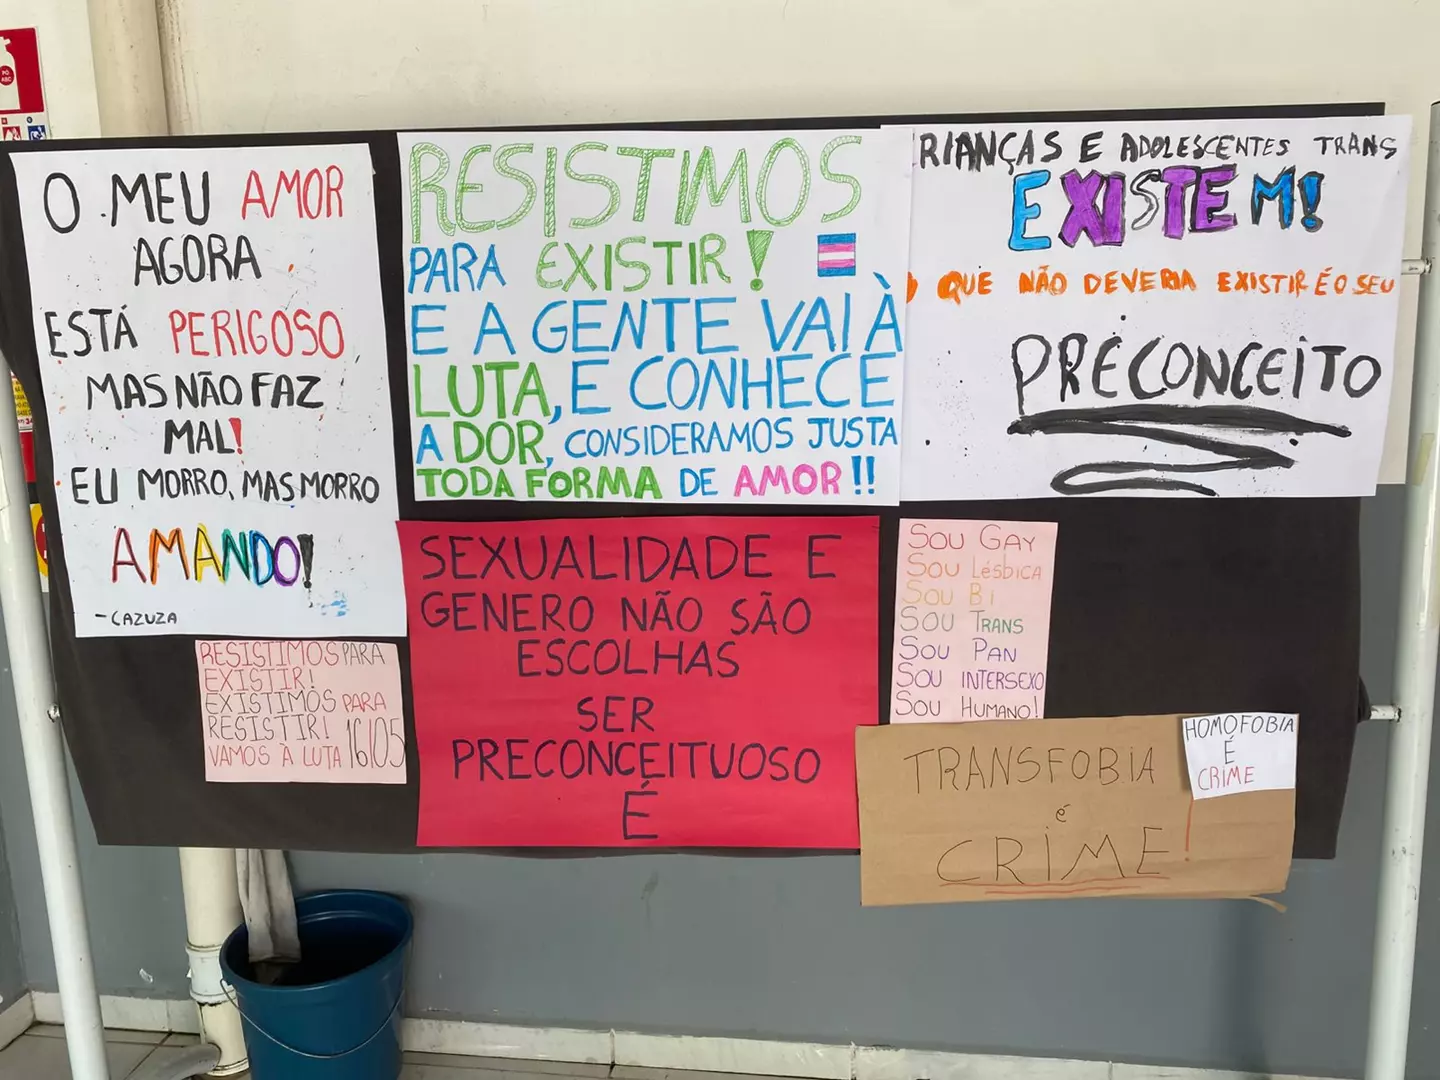 O MEU AMOR
AGORA
ESTÁ PERIGOSO
MAS NÃO FAZ
MAL!
EU MORRO, MAS MORRO
AMANDO!
- CAZUZA
RESISTIMOS
PARA EXISTIR!
E A GENTE VAI À
LUTA, E CONHECE
A DOR, CONSIDERAMOS JUSTA
TODA FORMA DE AMOR!!
RIANÇAS E ADOLESCENTES TRANS
EXISTEM!
O QUE NÃO DEVERIA EXISTIR É O SEU
PRECONCEITO
RESISTIMOS PARA
EXISTIR!
EXISTIMOS PARA
RESISTIR!
VAMOS À LUTA 16/05
SEXUALIDADE E
GENERO NÃO SÃO
ESCOLHAS
SER
PRECONCEITUOSO
É
SOU GAY
SOU LÉSBICA
SOU BI
SOU TRANS
SOU PAN
SOU INTERSEXO
SOU HUMANO!
TRANSFOBIA
é
CRIME
HOMOFOBIA
É
CRIME